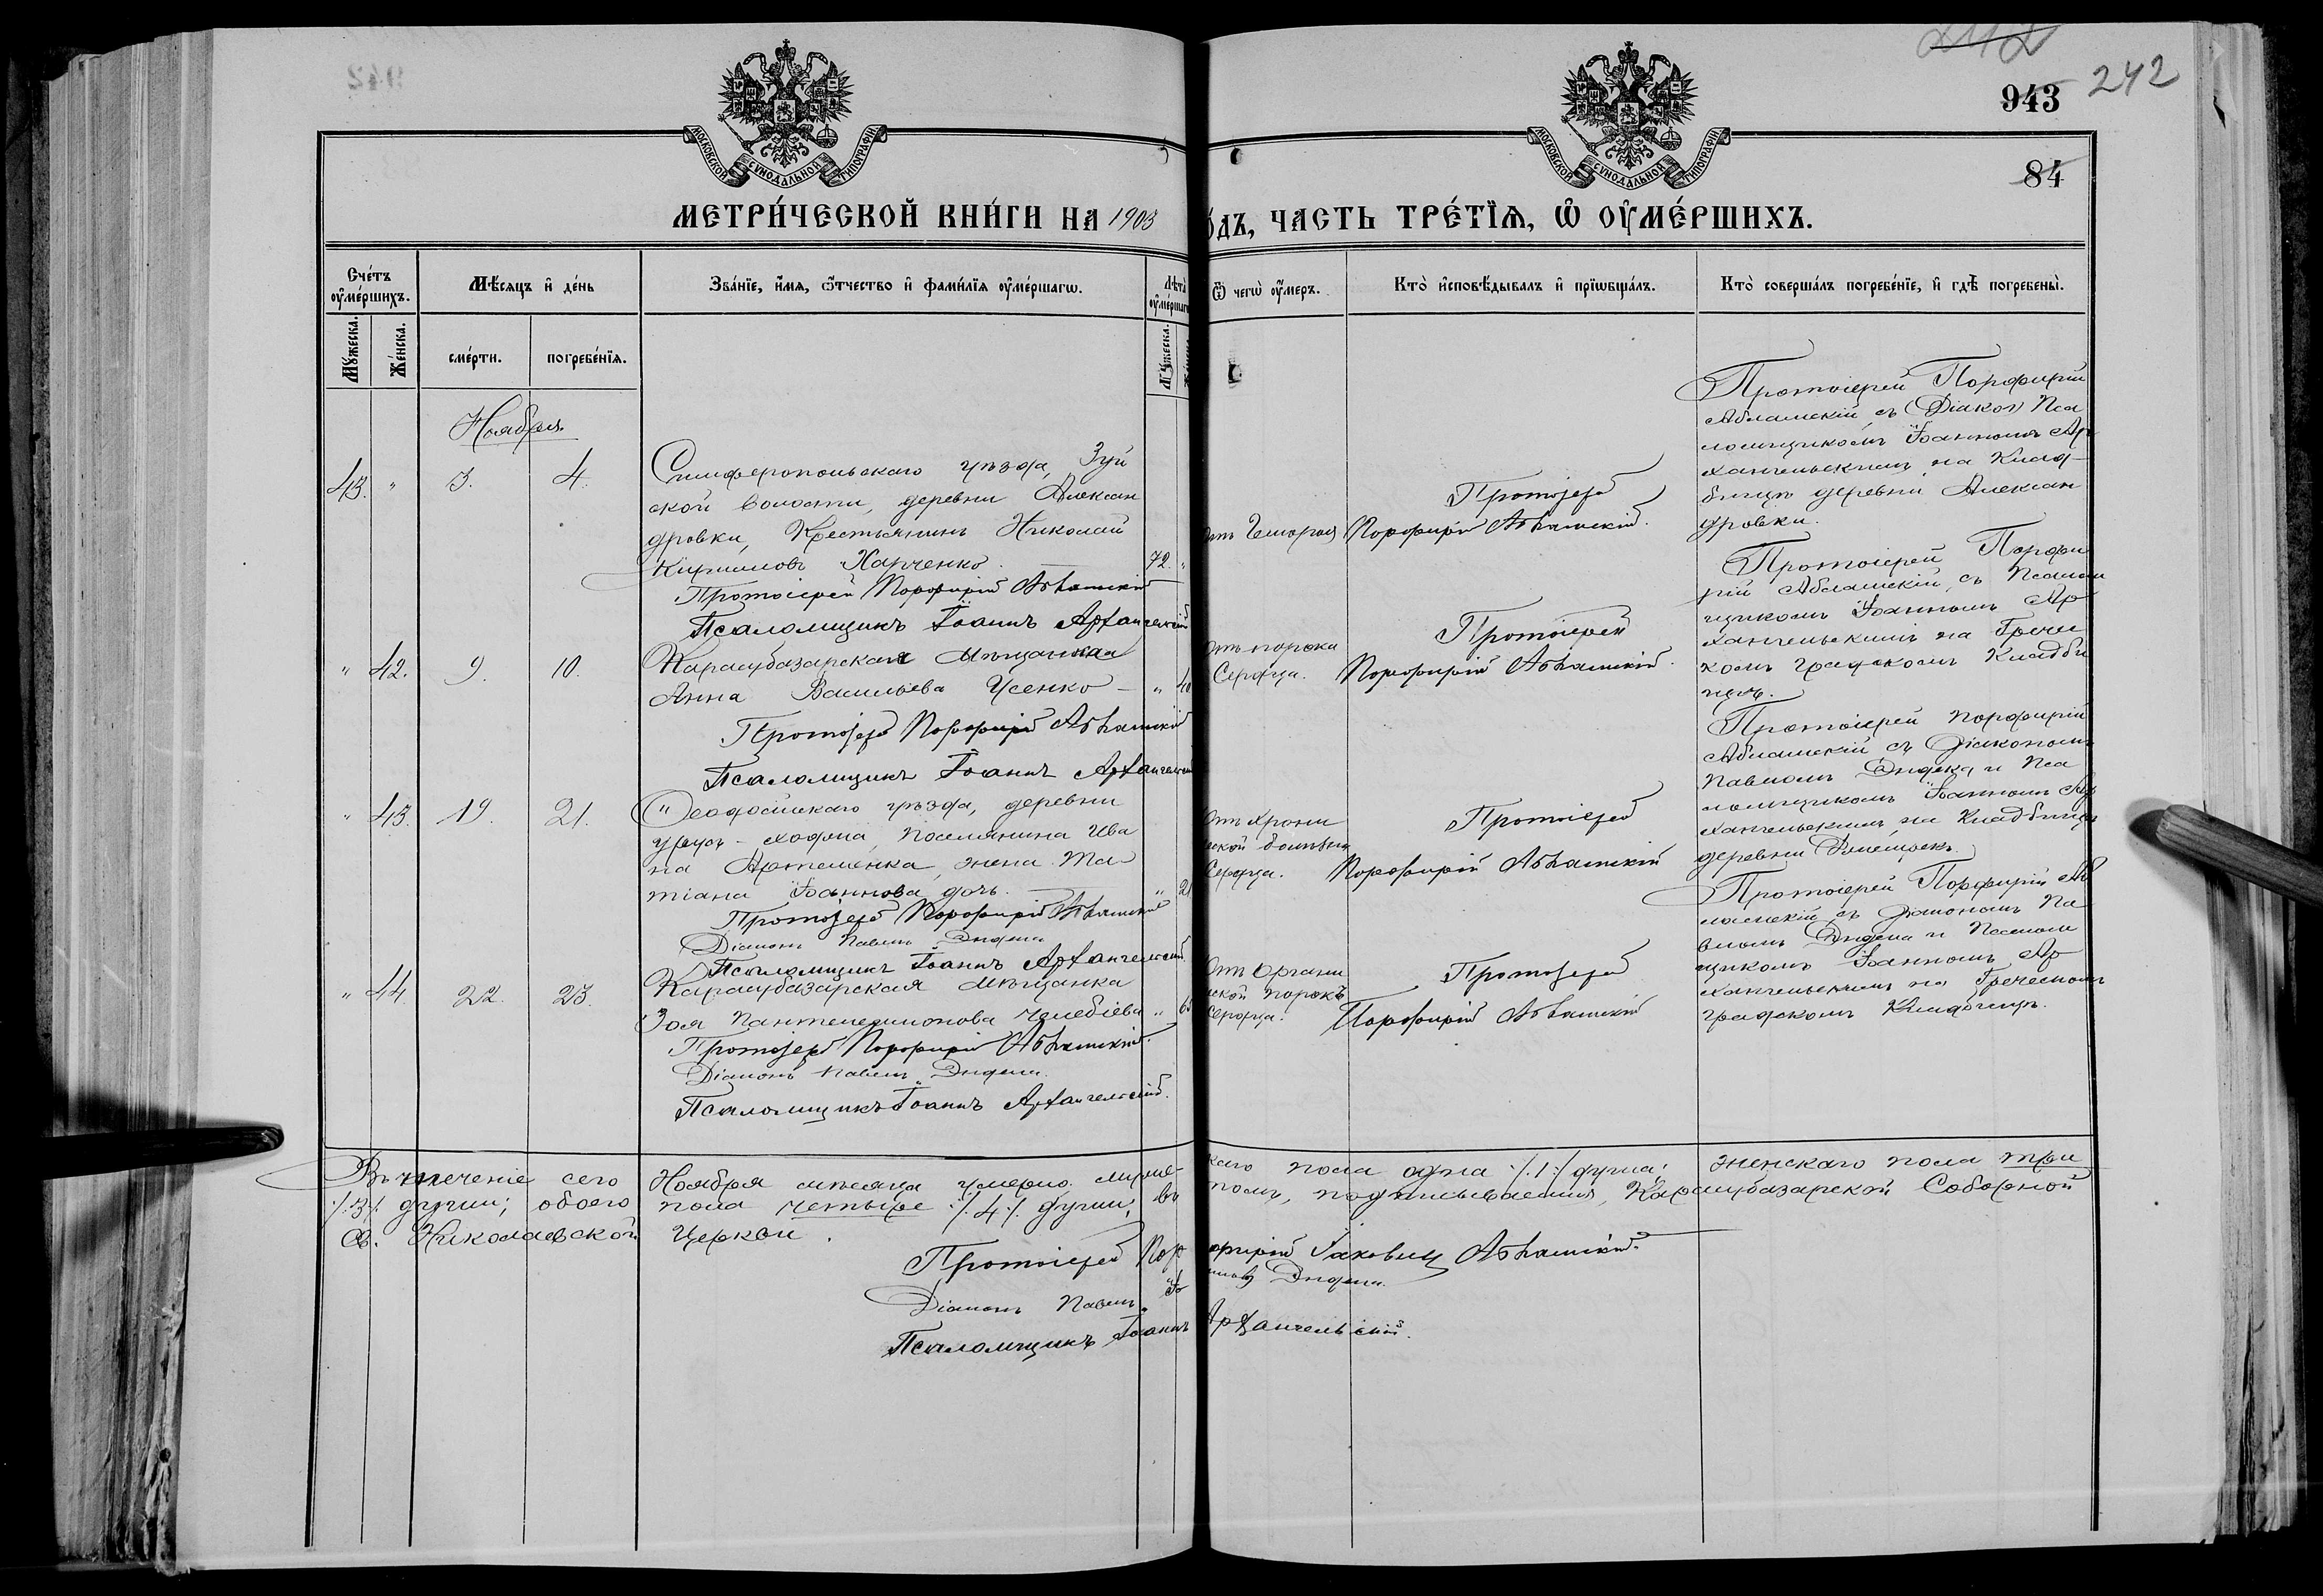 242
943 242
84
МОСКОВСКОЙ СѴНОДАЛЬНОЙ ТИПОГРАФІИ
МОСКОВСКОЙ СѴНОДАЛЬНОЙ ТИПОГРАФІИ
МЕТРИ́ЧЕСКОЙ КНИ́ГИ НА 1903
О́ДЪ, ЧАСТЬ ТРЕ́ТІѦ, Ѡ ОУМЕ́РШИХЪ.
Сче́тъ оуме́ршихъ.
Мѣ́сяцъ и де́нь
Зва́ніе, и́мѧ, ѻ́тчество и фами́лїѧ оуме́ршагѡ.
Лѣта оуме́ршаг
Ѿ чегѡ̀ оу́меръ.
Кто̀ исповѣ́дывалъ и прїѡбща́лъ.
Кто̀ соверша́лъ погребе́нїе, и гдѣ̀ погребены̀.
Мꙋ́жеска. Же́нска.
сме́рти. погребе́нїѧ.
Мꙋ́жеска.
Ноября.
43. " 3. 4.
Симферопольскаго уѣзда, Зуй
ской волости, деревни Алексан
дровки, Крестьянинъ Николай
Кирилловъ Харченко. 72. "
Протоіерей Порфирій Абламскій
Псаломщикъ Іоаннъ Архангельскій
Протоіерей
Порфирій Абламскій.
Протоіерей Порфирій
Абламскій, съ Діакон Пса
ломщикомъ Іоанномъ Ар
хангельскимъ на Клад-
бищѣ деревни Алексан
дровки.
" 42. 9. 10.
Карасубазарская Мѣщанка
Анна Васильева Усенко - " 40
Протоіерей Порфирій Абламскій
Псаломщикъ Іоаннъ Архангельскій
отъ порока
Сердца.
Протоіерей
Порфирій Абламскій.
Протоіерей Порфи
рій Абламскій, съ Псалом
щикомъ Іоанномъ Ар
хангельскимъ на Грече
комъ градскомъ Кладби
щѣ.
" 43. 19. 21.
Ѳеодосійскаго уѣзда, деревни
поселянина Ива
на Артеменка, жена Та
тіана Іоаннова дочь. " 21
Протоіерей Порфирій Абламскій
Діаконъ Павелъ
Псаломщикъ Іоаннъ Архангельскій.
отъ хрони
ской болѣзни
Сердца.
Протоіерей
Порфирій Абламскій
Протоіерей Порфирій
Абламскій съ Діакономъ
Павломъ и Пса
ломщикомъ Іоанномъ Ар
хангельскимъ, на Кладбищѣ
деревни
" 44. 22. 23.
Карасубазарская мѣщанка
Зоя Пантелеимонова Челебіева " 65
Протоіерей Порфирій Абламскій.
Діаконъ Павелъ
Псаломщикъ Іоаннъ Архангельскій.
Отъ Органи
ской порокъ
Сердца.
Протоіерей
Порфирій Абламскій
Протоіерей Порфирій Аб
ламскій съ Діакономъ Па
вломъ и Псалом
щикомъ Іоанномъ Ар
хангельскимъ на Греческомъ
градскомъ Кладбищѣ.
Въ теченіе сего Ноября мѣсяца умерло: муже-
каго пола одна /.1./ душа: женскаго пола три
/.3./. души; обоего пола четыре /.4./. души; въ
томъ, подписываемся, Карасубазарской Соборной
Св. Николаевской Церкви.
Протоіерей Пор
фирій Іаковъ Абламскій.
Діаконъ Павелъ
Псаломщикъ Іоаннъ
Архангельскій.